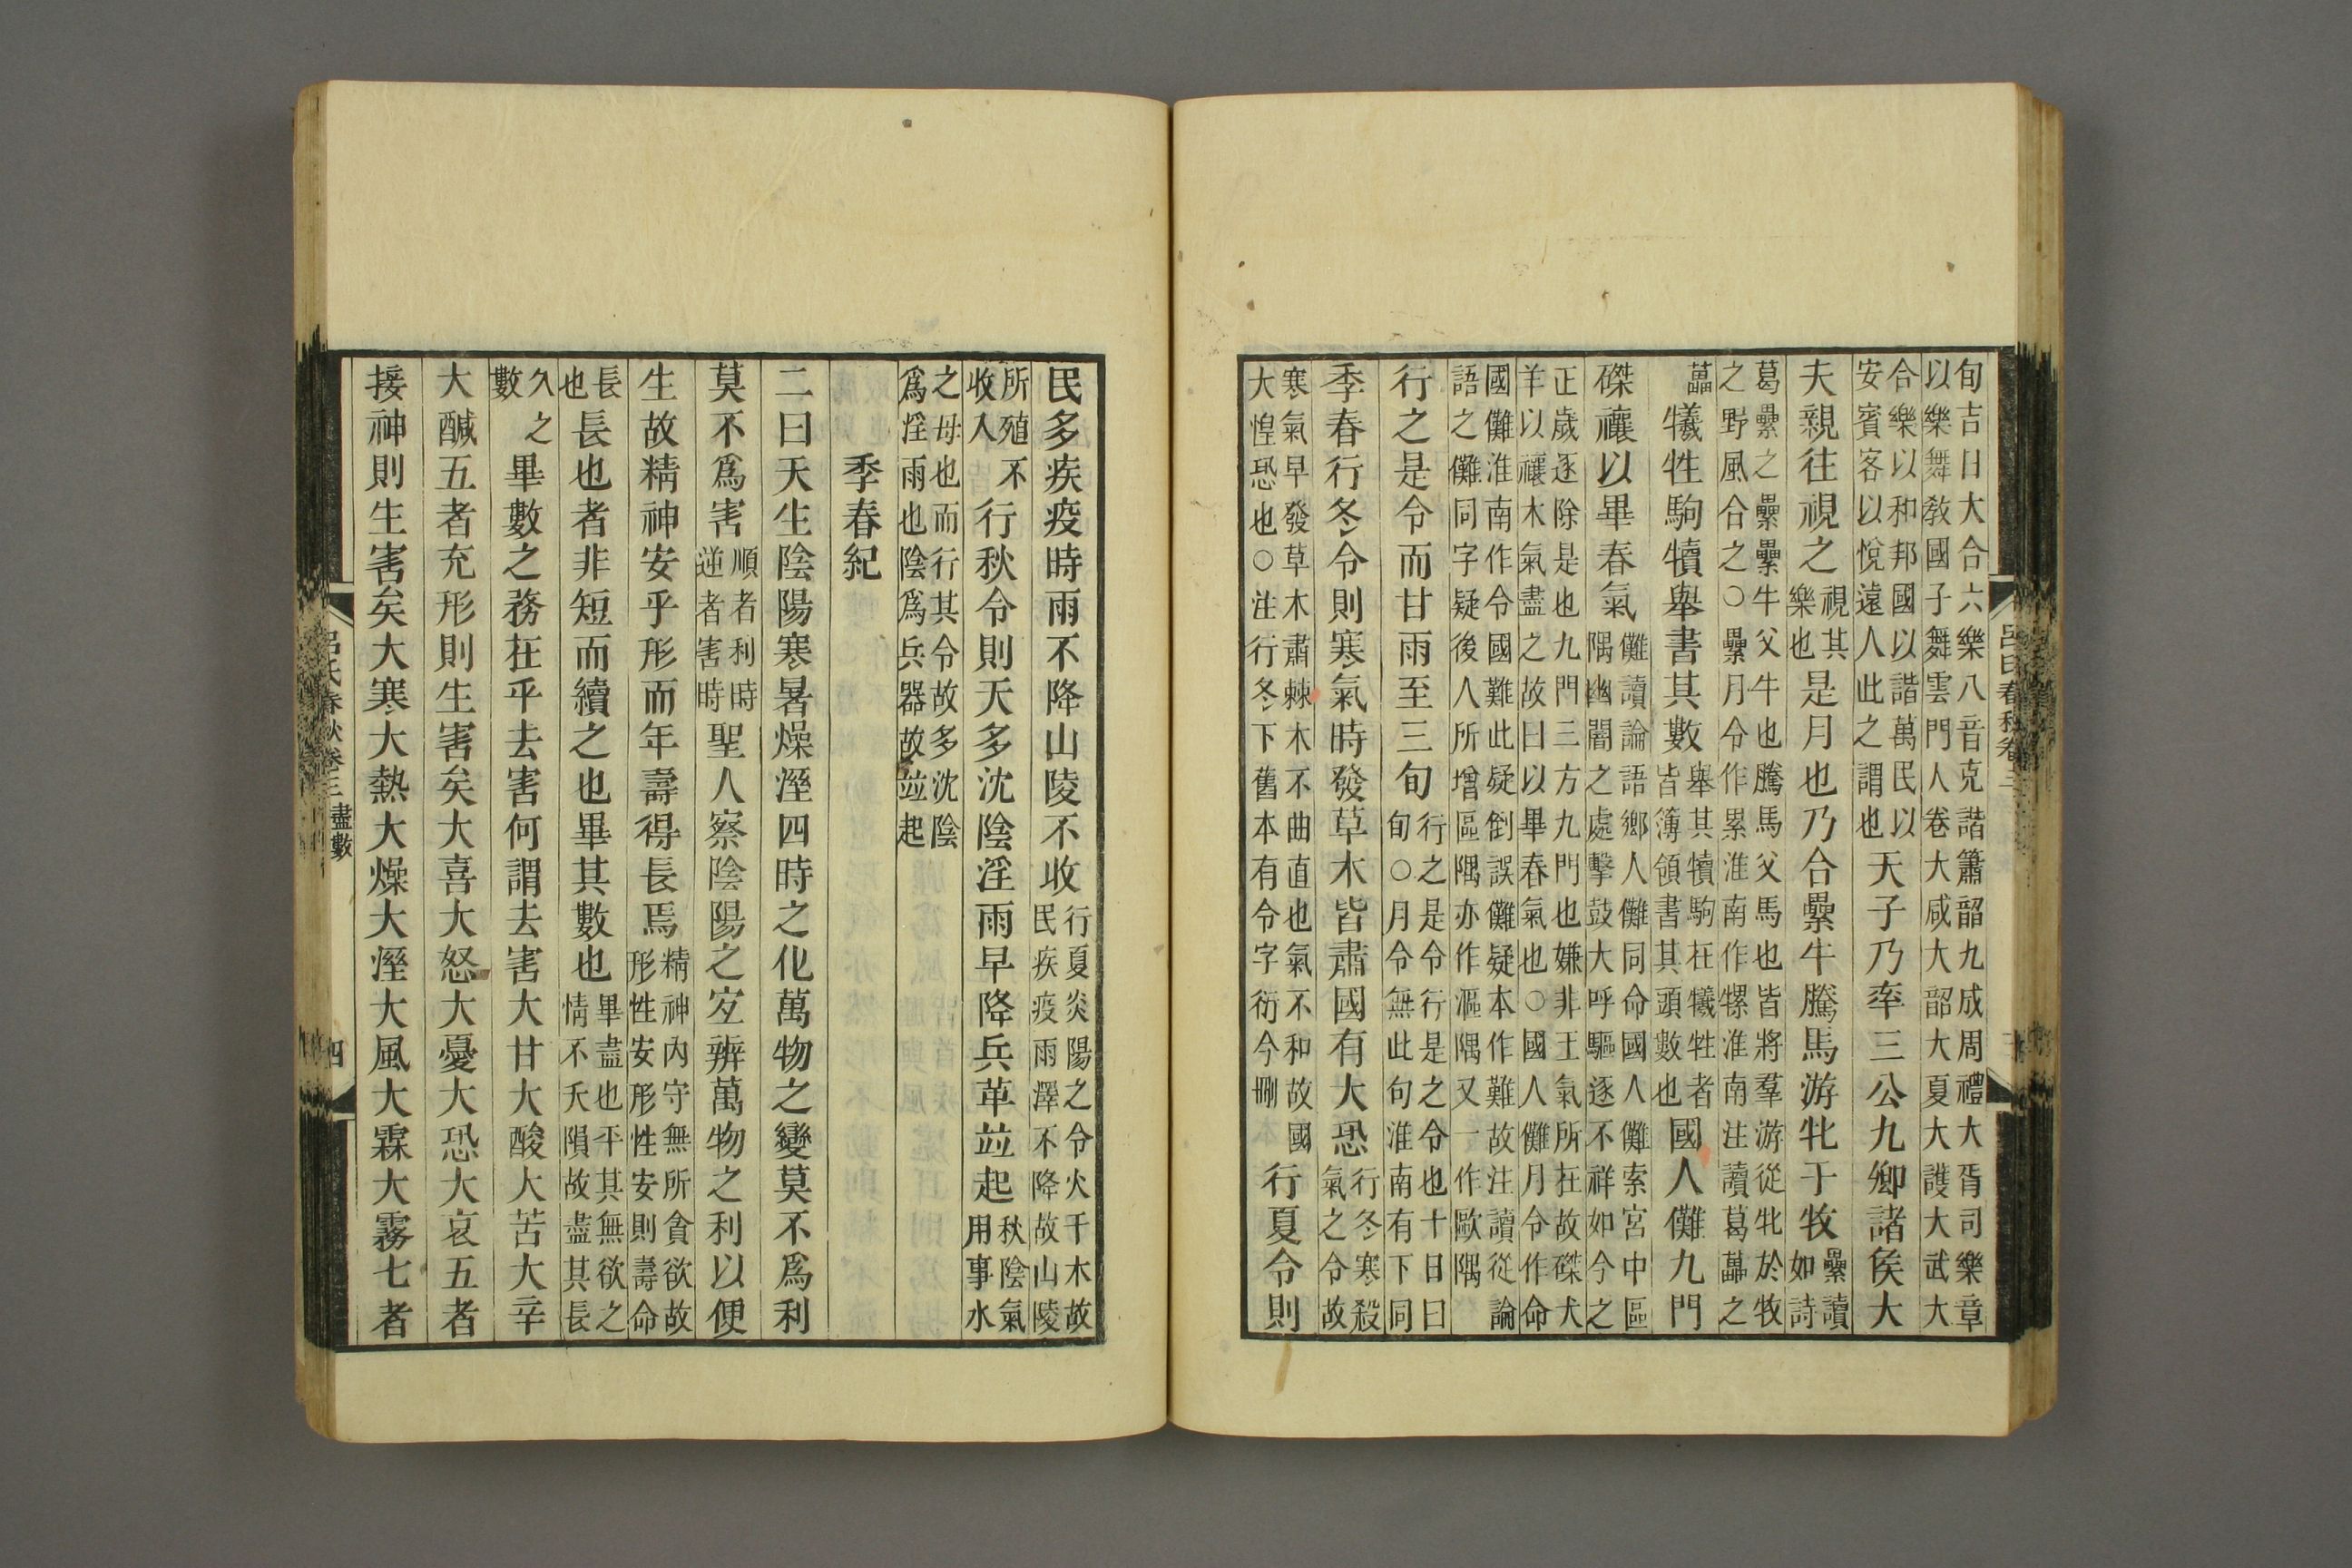 旬吉日大合六樂八音克諧簫韶九成周禮大胥司樂章
以樂舞教國子舞雲門人卷大咸大韶大夏大頀大武大
合樂以和邦國以諧萬民以安賓客以悅遠人此之謂也天子乃率三公九卿諸侯大
夫親往視之視其樂也是月也乃合纍牛騰馬游牝于牧纍讀如詩
葛纍之纍纍牛父牛也騰馬父馬也皆將羣游從牝於牧
之野風合之○纍月令作累淮南作㹎淮南注讀葛藟之
藟犧牲駒犢舉書其數舉其犢駒在犧牲者皆簿領書其頭數也國人儺九門
磔禳以畢春氣儺讀論語鄉人儺同命國人儺索宮中區隅幽闇之處擊鼓大呼驅逐不祥如今之
正歲逐除是也九門三方九門也嫌非王氣所在故磔犬
羊以禳木氣盡之故曰以畢春氣也○國人儺月令作命
國儺淮南作令國難此疑倒誤儺疑本作難故注讀從論
語之儺同字疑後人所增區隅亦作漚隅又一作歐隅
行之是令而甘雨至三旬行之是令行是之令也十日曰旬○月令無此句淮南有下同
季春行冬令則寒氣時發草木皆肅國有大恐行冬寒殺氣之令故
寒氣早發草木肅棘木不曲直也氣不和故國大惶恐也○注行冬下舊本有令字衍今刪行夏令則
呂氏春秋卷三
三
民多疾疫時雨不降山陵不收行夏炎陽之令火干木故民疾疫雨澤不降故山陵
所殖不收入行秋令則天多沈陰淫雨早降兵革竝起秋陰氣用事水
之母也而行其令故多沈陰爲淫雨也陰爲兵器故竝起
季春紀
二曰天生陰陽寒暑燥溼四時之化萬物之變莫不爲利
莫不爲害順者利時逆者害時聖人察陰陽之宜辨萬物之利以便
生故精神安乎形而年壽得長焉精神內守無所貪欲故形性安形性安則壽命
長也長也者非短而續之也畢其數也畢盡也平其無欲之情不夭隕故盡其長
久之數畢數之務在乎去害何謂去害大甘大酸大苦大辛
大醎五者充形則生害矣大喜大怒大憂大恐大哀五者
接神則生害矣大寒大熱大燥大溼大風大霖大霧七者
呂氏春秋卷三 盡數
四